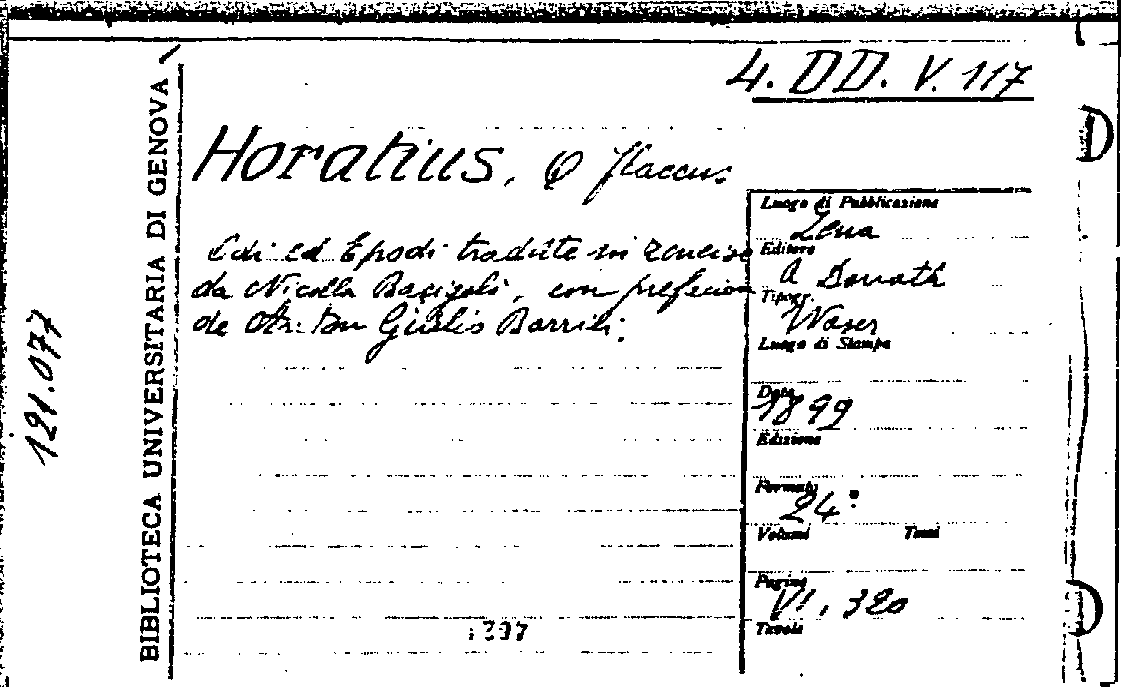 4. DD. V. 117
BIBLIOTECA UNIVERSITARIA DI GENOVA
121.077
Horatius, Q flaccus
Odi ed Epodi tradute in zeneise
da Nicolla Bacigalô, con prefacion
de Anton Giulio Barrili.
Luogo di Pubblicazione
Zena
Editore
A Donath
Tipogr.
Waser
Luogo di Stampa
Data
1899
Edizione
Formato
24°
Volumi Tomi
Pagine
VI, 320
Tavole